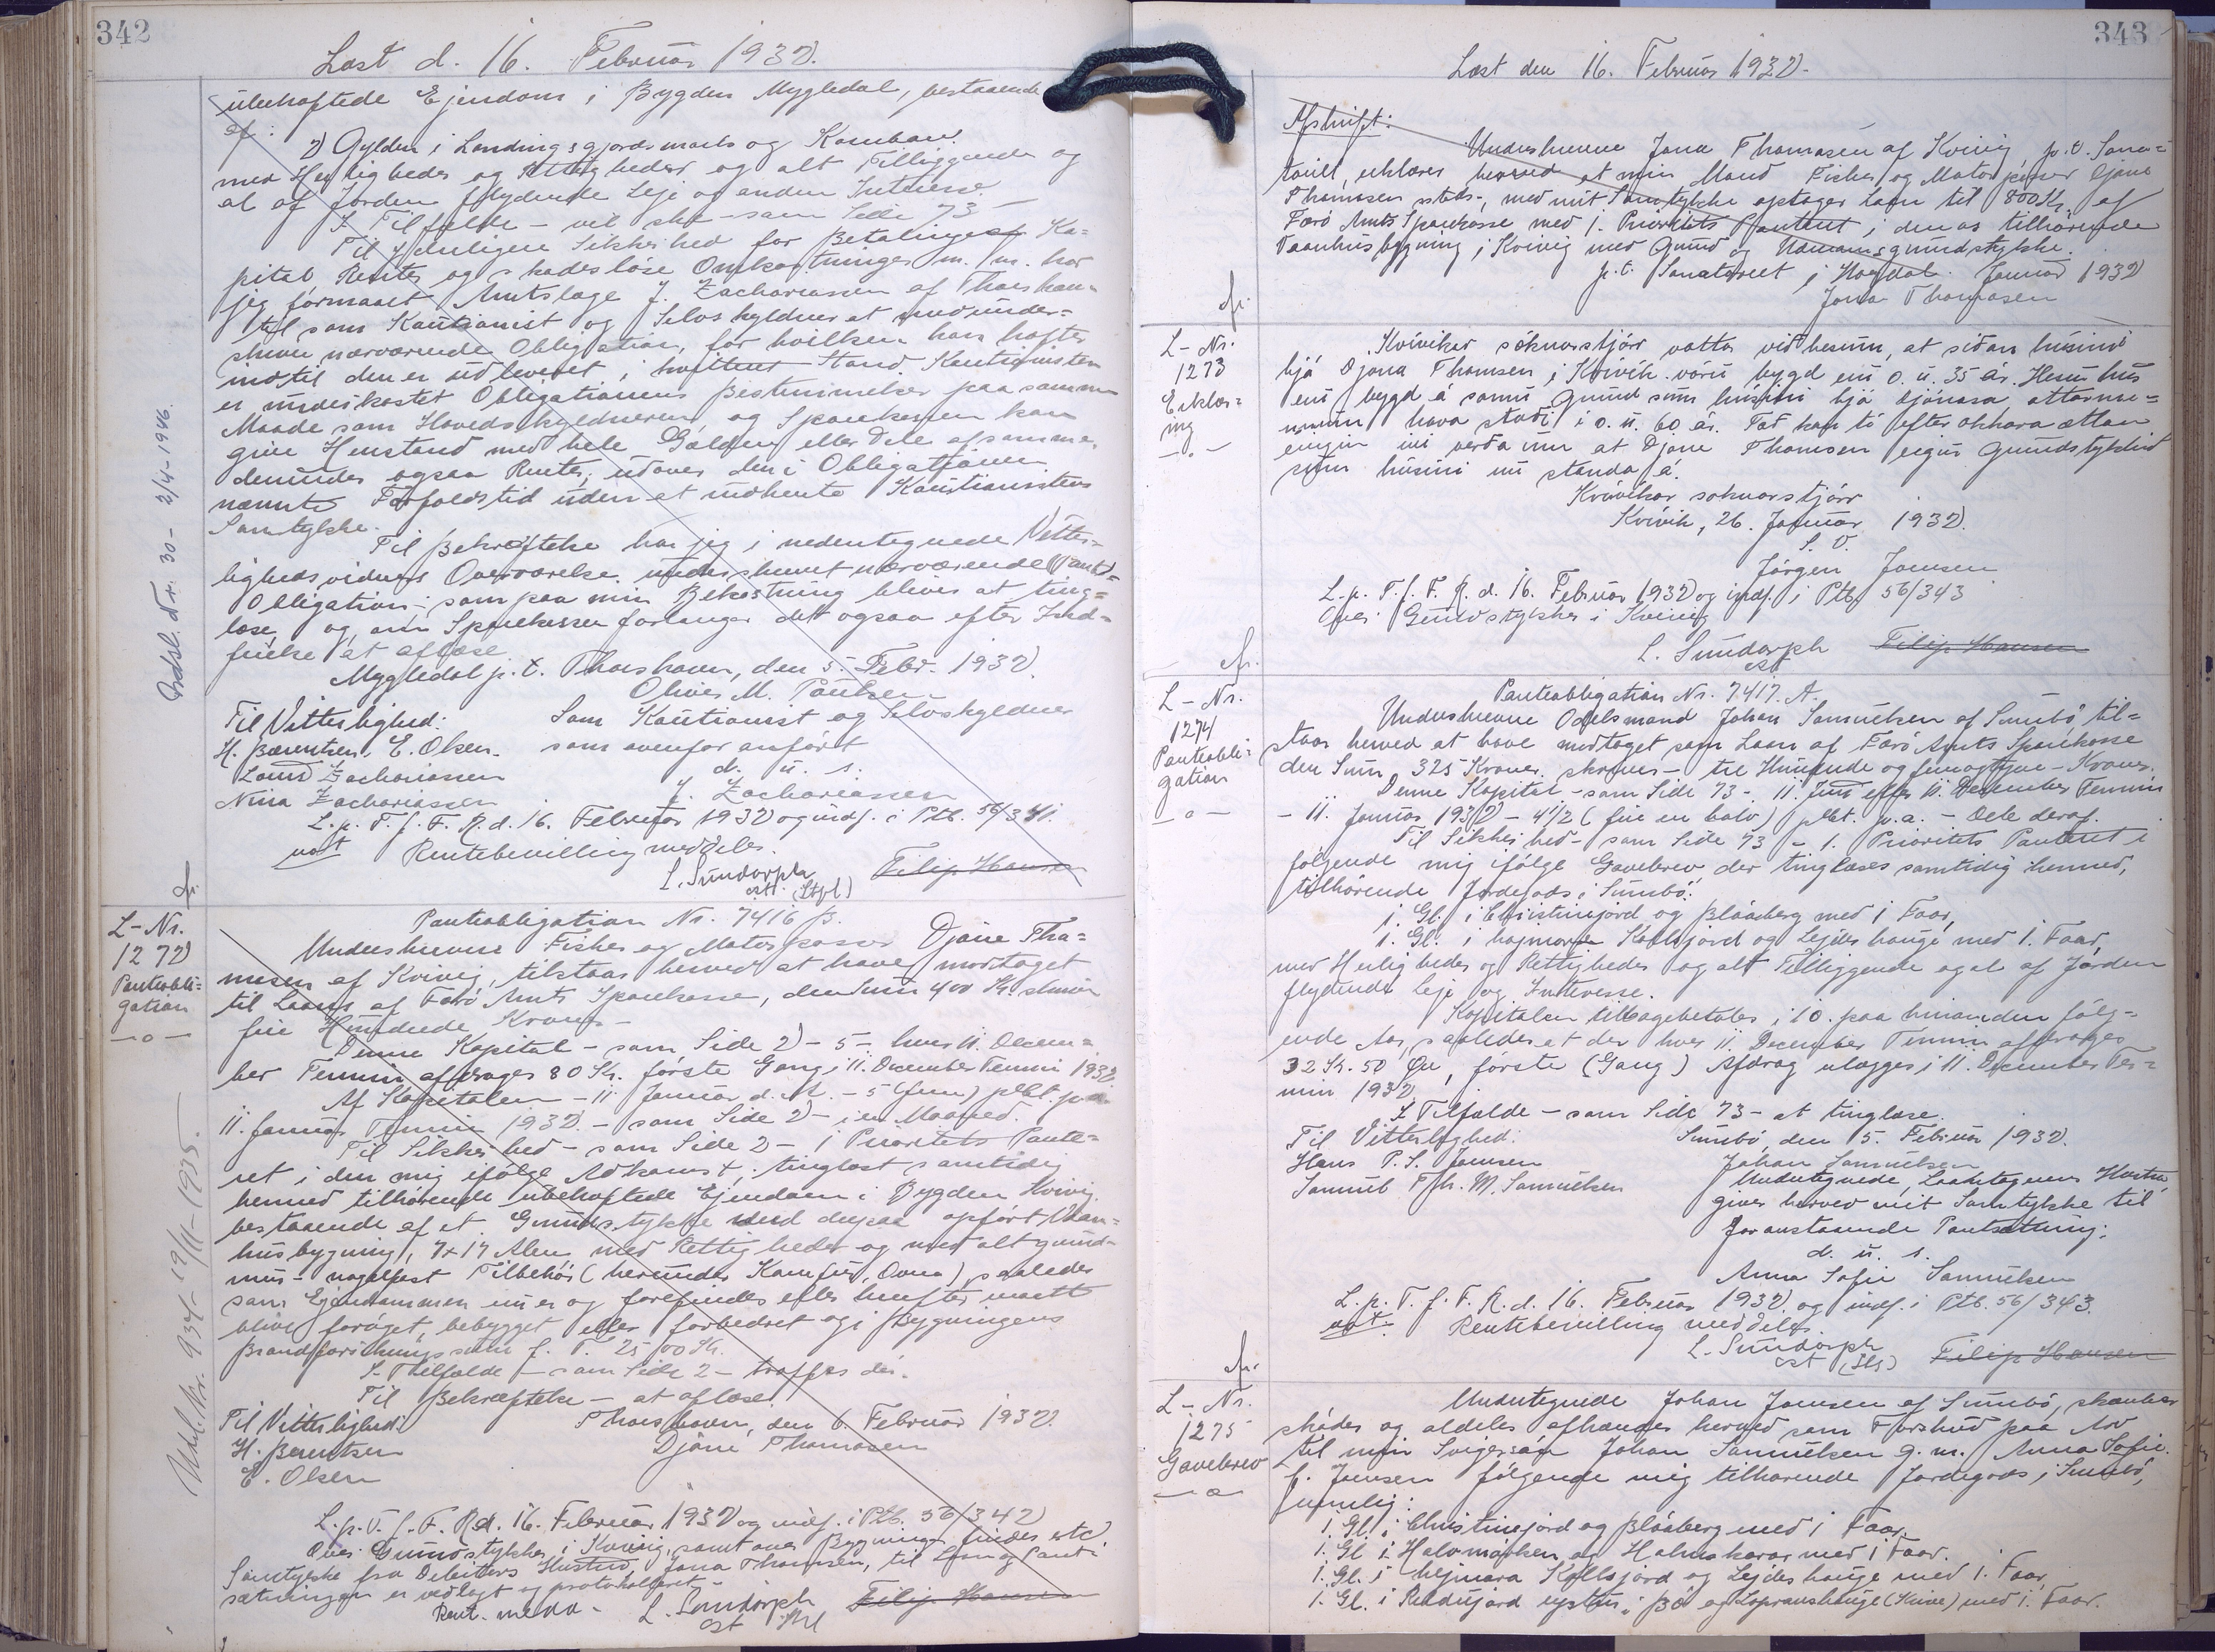 342
Læst d. 16. Februar 1932.
ubehæftede Ejendom i Bygden Mygledal, bestaaende
af:
2 Gylden i Landingsgjordsmark og Kamban
med Herligheder og Rettigheder og alt Tilliggende og
al af Jorden flydende Leje og anden Interesse
I Tilfælde - vil ske - som Side 73 -
Til yderligere Sikkerhed for Betalingen af Ka=
pital Renter og skadesløse Omkostninger m. m. har
jeg formaaet Amtslæge J. Zachariassen af Thorshavn
til som Kautionist og Selvskyldner at medunder=
skrive nærværende Obligation, for hvilken han hæfter
indtil den er udleveret i kvitteret Stand. Kautionisten
er underkastet Obligationens Bestemmelser paa samme
Maade som Hovedskyldneren og Sparekassen kan
give Henstand med hele Gælden eller Dele af samme,
derunder ogsaa Renter, udover den i Obligationen
nævnte Forfaldstid uden at indhente Kautionistens
Samtykke.
Til Bekræftelse har jeg i nedentegnede Vitter=
lighedsvidners Overværelse underskrevet nærværende Pant=
obligation - som paa min Bekostning bliver at ting=
læse, og, om Sparekassen forlanger det ogsaa efter Ind=
frielse at aflæse
Mygledal p. t. Thorshavn, den 5. Febr. 1932.
Oliver M. Poulsen
Til Vitterlighed: Som Kautionist og Selvskyldner
H. Bærentsen, E. Olsen. som ovenfor anført
d. u. s.
Zachariassen J. Zachariassen
Nina Zachariassen
L. p. T. f. F. R. d. 16. Februar 1932 og indf. i Ptb. 56/341.
not Rentebevilling meddeles.
L. Sundorph Filip Hansen
cst (Stpl)
Indsl. Nr. 30 - 2/4-1946.
fr.
L-Nr.
1272
Panteobli=
gation
-o-
Panteobligation Nr. 7416 B.
Underskrevne Fisker og Motorpasser Djóne Tho=
masen af Kvivig, tilstaar herved at have modtaget
til Laans af Færø Amts Sparekasse, den Sum 400 Kr. skriver
fire Hundrede Kroner -
Denne Kapital - som Side 2 - 5 - hver 11. Decem=
ber Termin afdrages 80 Kr. første Gang i 11. December Termin 1932
Af Kapitalen - 11 Januar d. A. - 5 (fem) pCt. p. a.
11. Januar Termin 1932. - som Side 2 - i en Maaned.
Til Sikkerhed - som Side 2 - 1 Prioritets Pante=
ret i den mig ifølge Adkomst, tinglæst samtidig
hermed tilhørende ubehæftede Ejendom i Bygden Kvivig
bestaaende af et Grundstykke med derpaa opført Vaan=
husbygning, 7x17 Alen med Rettigheder og med alt grund=
mur- nagelfast Tilbehør (herunder Komfur, Ovne) saaledes
som Ejendommen nu er og forefindes eller herefter maatte
blive forøget, bebygget eller forbedret og i Bygningens
Brandforsikringssum f. T. 2500 Kr.
I Tilfælde - som Side 2 - træffes der.
Til Bekræftelse - at aflæse.
Til Vitterlighed: Thorshavn, den 6. Februar 1932.
H. Bærentsen Djóne Thomasen
E. Olsen
L. p. T. f. F. R. d. 16. Februar 1932 og indf. i Ptb. 56/342
Over Grundstykket i Kvivig, samt over Bygningen findes
Samtykke fra Debitors Hustru, Jona Thomsen, til Pant=
sætningen er vedlagt og protokolleret
Rent. medd. - L. Sundorph Filip Hansen
cst
Udsl. Nr. 934 - 19/11-1935.
343
Læst den 16. Februar 1932.
Afskrift:
Underskrevne Jona Thomasen af Kvivig p. t. Sana=
toriet, erklærer herved at min Mand Fisker og Motorpasser Djóne
Thomasen steds-, med mit Samtykke optager Laan til 800 Kr. af
Færø Amts Sparekasse med 1. Prioritets Panteret i den os tilhørende
Vaanhusbygning i Kvivig med Grund og
p. t. Sanatoriet i Hoydal. Januar 1932
Jona Thomasen
fr.
L-Nr.
1273
Erklær=
ing
-o-
Kvívíkar sóknarstjórn vátta við hesum, at síðan húsini
hjá Djóna Thomsen í Kvívík vóru bygd eru o. u. 35 ár. Hesi hús
eru bygd á sama grund sum húsini hjá Djónasa ættarnu=
num hava staðið í o. u. 60 ár. Tað kan tí eftir okkara áttan
eingin ivi verða um at Djóne Thomsen eigur Grundstykkið
sum húsini nú standa á.
Kvívíkar sóknarstjórn
Kvívík, 26. Januar 1932.
S. V.
Jørgen Joensen
L. p. T. f. F. R. d. 16. Februar 1932 og indf. i Ptb. 56/343
Over Grundstykket i Kvivig
L. Sundorph Filip Hansen
cst
fr.
L-Nr.
1274
Panteobli=
gation
-o-
Panteobligation Nr. 7417. A.
Underskrevne Odelsmand Johan Samuelsen af Sumbø til=
staar herved at have modtaget som Laan af Færø Amts Sparekasse
den Sum 325 Kroner skriver - tre Hundrede og femogtyve - Kroner.
Denne Kapital - som Side 73 - 11. Juni eller 11. December Termin
- 11. Januar 1932 - 4½ (fire en halv) pCt. p. a. - Dele deraf.
Til Sikkerhed - som Side 73 - 1. Prioritets Panteret i
følgende mig ifølge Gavebrev, der tinglæses samtidig hermed,
tilhørende Jordegods i Sumbø:
1. Gl. i Christinejord og Blåaberg med 1 Faar,
1. Gl. i Kollsjord og Lejdeshauge med 1. Faar,
med Herligheder og Rettigheder og alt Tilliggende og al af Jorden
flydende Leje og Interesse.
Kapitalen tilbagebetales i 10. paa hinanden følg=
ende Aar, saaledes at der hver 11. December Termin afdrages
32 Kr. 50 Øre, første (Gang) Afdrag erlægges i 11. December Ter=
min 1932
I Tilfælde - som Side 73 - at tinglæse.
Til Vitterlighed: Sumbø, den 5. Februar 1932.
Hans P. S. Joensen Johan Samuelsen
Samuel Fr. M. Samuelsen Undertegnede, Laantagerens Hustru
giver herved mit Samtykke til
foranstaaende Pantsætning:
d. u. s.
Anna Sofie Samuelsen
L. p. T. f. F. R. d. 16. Februar 1932 og indf. i Ptb. 56/343.
not. Rentebevilling meddeles
L. Sundorph Filip Hansen
cst
fr.
L-Nr.
1275
Gavebrev
-o-
Undertegnede Johan Joensen af Sumbø, skænker
skøder og aldeles afhænder herved som Forskud paa Arv
til min Svigersøn Johan Samuelsen g. m. Anna Sofie.
f. Joensen følgende mig tilhørende Jordegods i Sumbø,
nemlig:
1. Gl. i Christinejord og Blåaberg med 1 Faar.
1. Gl. i Halvmarken og Halmakaras med 1 Faar.
1. Gl. i Kollsjord og Lejdeshauge med 1. Faar
1. Gl. i med 1. Faar.